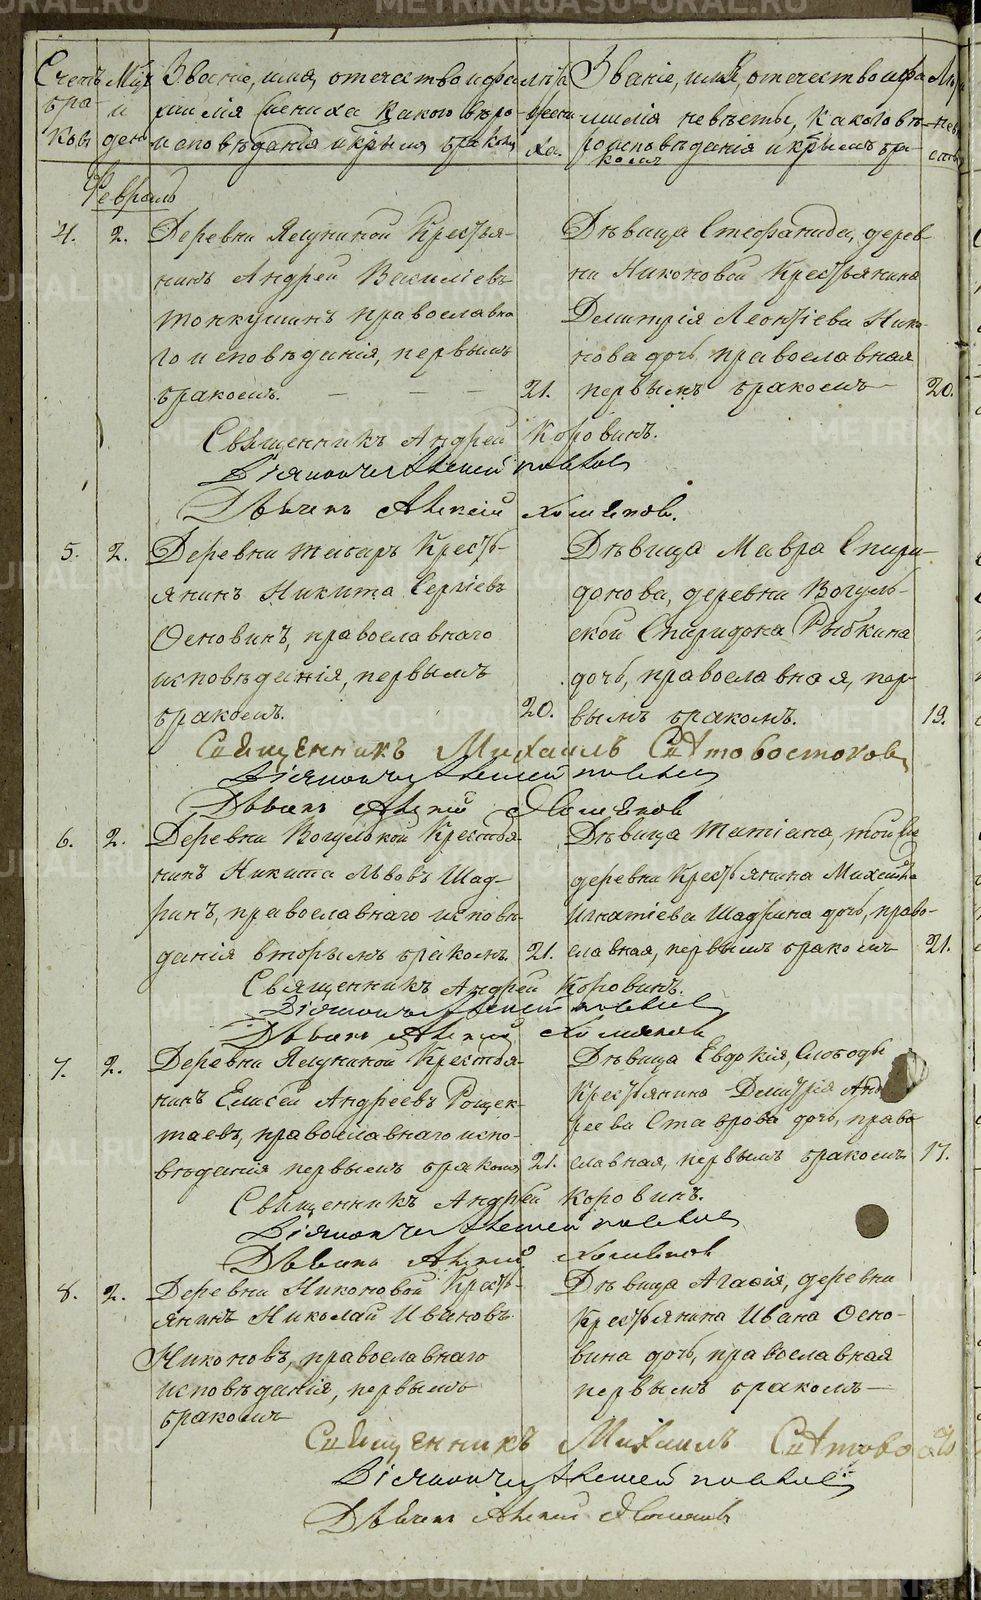 Счетъ бра- ковъ
Мѣс. и день
Званіе, имя, отечество и фа-
милія жениха какого вѣро-
исповѣданія и коимъ бракомъ
Лѣта жени- ха.
Званіе, имя, отечество и фа-
милія невѣсты, какого вѣ-
роисповѣданія и коимъ бра-
комъ
Лѣта невѣ- сты
Февраль
4. 2. Деревни Ялуниной Кресть-
янинъ Андрей Василіевъ
Тонкушинъ православна-
го исповѣданія, первымъ
бракомъ. — — — 21.
Дѣвица Стефанида, дерев-
ни Никоновой Крестьянина
Димитрія Леонтіева Нико-
нова дочь, православная
первымъ бракомъ — 20.
Священникъ Андрей Коровинъ.
Діяконъ Алексей
Дьячекъ Алексій Хомяковъ.
5. 2. Деревни Кресть-
янинъ Никита Сергіевъ
Осковинъ, православнаго
исповѣданія, первымъ
бракомъ. 20.
Дѣвица Мавра Спири-
донова, деревни Вогуль-
ской Спиридона Рыбкина
дочь, православная, пер-
вымъ бракомъ. 19.
Священникъ Михаилъ Святовостоковъ
Діяконъ Алексей
Дьячекъ Алексій Хомяковъ
6. 2. Деревни Вогульской Крестья-
нинъ Никита Львовъ Шад-
ринъ, православнаго исповѣ-
данія вторымъ бракомъ. 21.
Дѣвица Татіана, той же
деревни Крестьянина
Игнатіева Шадрина дочь, право-
славная, первымъ бракомъ 21.
Священникъ Андрей Коровинъ.
Діяконъ Алексей
Дьячекъ Алексій Хомяковъ
7. 2. Деревни Ялуниной Крестья-
нинъ Елисей Андреевъ Рощек-
таевъ, православнаго испо-
вѣданія первымъ бракомъ 21.
Дѣвица Евдокія, Слободы
Крестьянина Димитрія Анд-
реева Ставрова дочь, право-
славная, первымъ бракомъ 17.
Священникъ Андрей Коровинъ.
Діяконъ Алексей
Дьячекъ Алексій Хомяковъ
8. 2. Деревни Никоновой Кресть-
янинъ Николай Ивановъ
Никоновъ, православнаго
исповѣданія, первымъ
бракомъ
Дѣвица Агафія, деревни
Крестьянина Ивана Оско-
вина дочь, православная
первымъ бракомъ —
Священникъ Михаилъ
Діяконъ Алексей
Дьячекъ Алексій Хомяковъ
METRIKI.GASU-URAL.RU